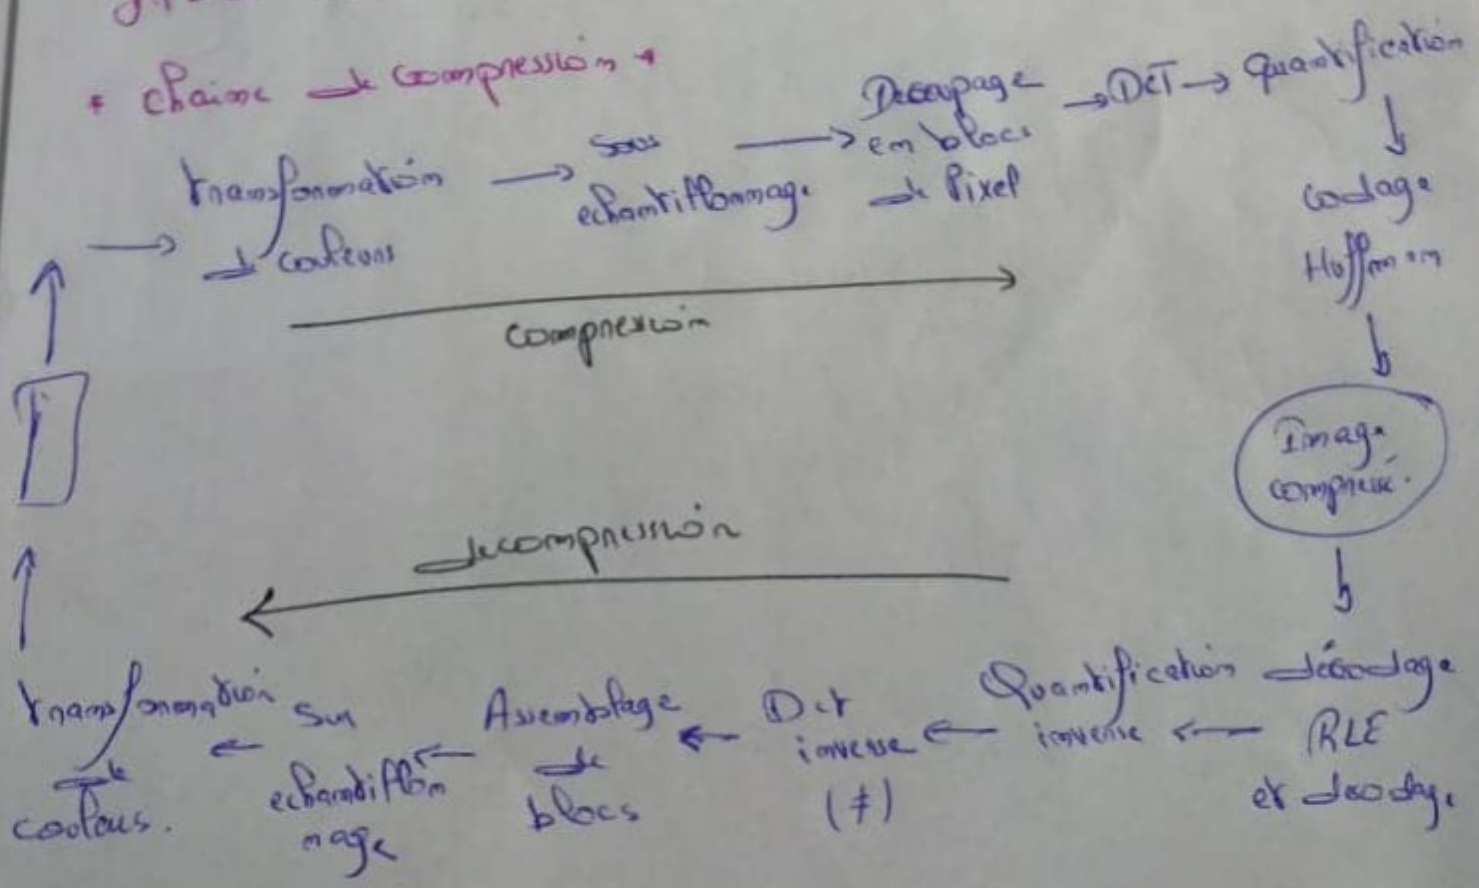 * chaine de compression *
transformation
de couleurs
Sous
echantillonnage
Decoupage
en blocs
de Pixel
DCT
Quantification
codage
Huffman
compression
Image
compressé
decompression
décodage
RLE
et decodage
Quantification
inverse
Dct
inverse
(≠)
Assemblage
de
blocs
Sur
echantillon
nage
transformation
de
couleurs.